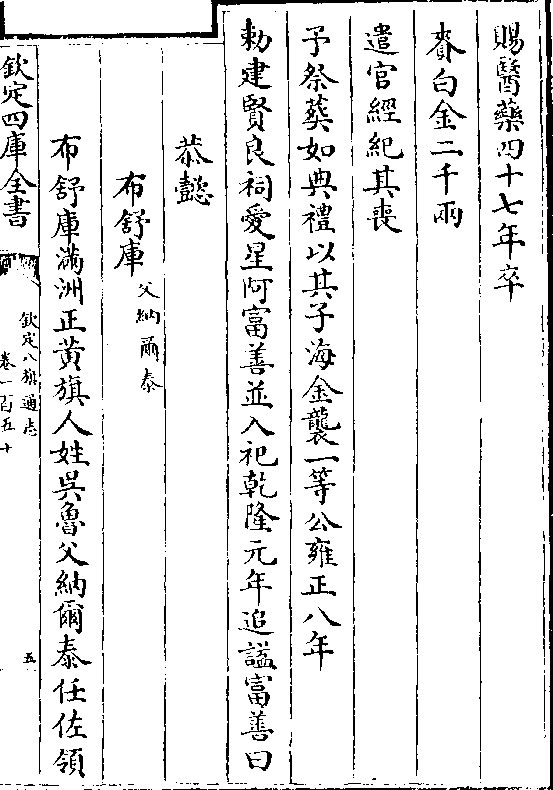 賜醫藥四十七年卒
賚白金二千兩
遣官經紀其喪
予祭葬如典禮以其子海金襲一等公雍正八年
勅建賢良祠愛星阿富善並入祀乾隆元年追諡富善曰
恭懿
布舒庫父納爾泰
布舒庫滿洲正黃旗人姓吳魯父納爾泰任佐領
欽定四庫全書
欽定八旗通志
卷一百五十
五